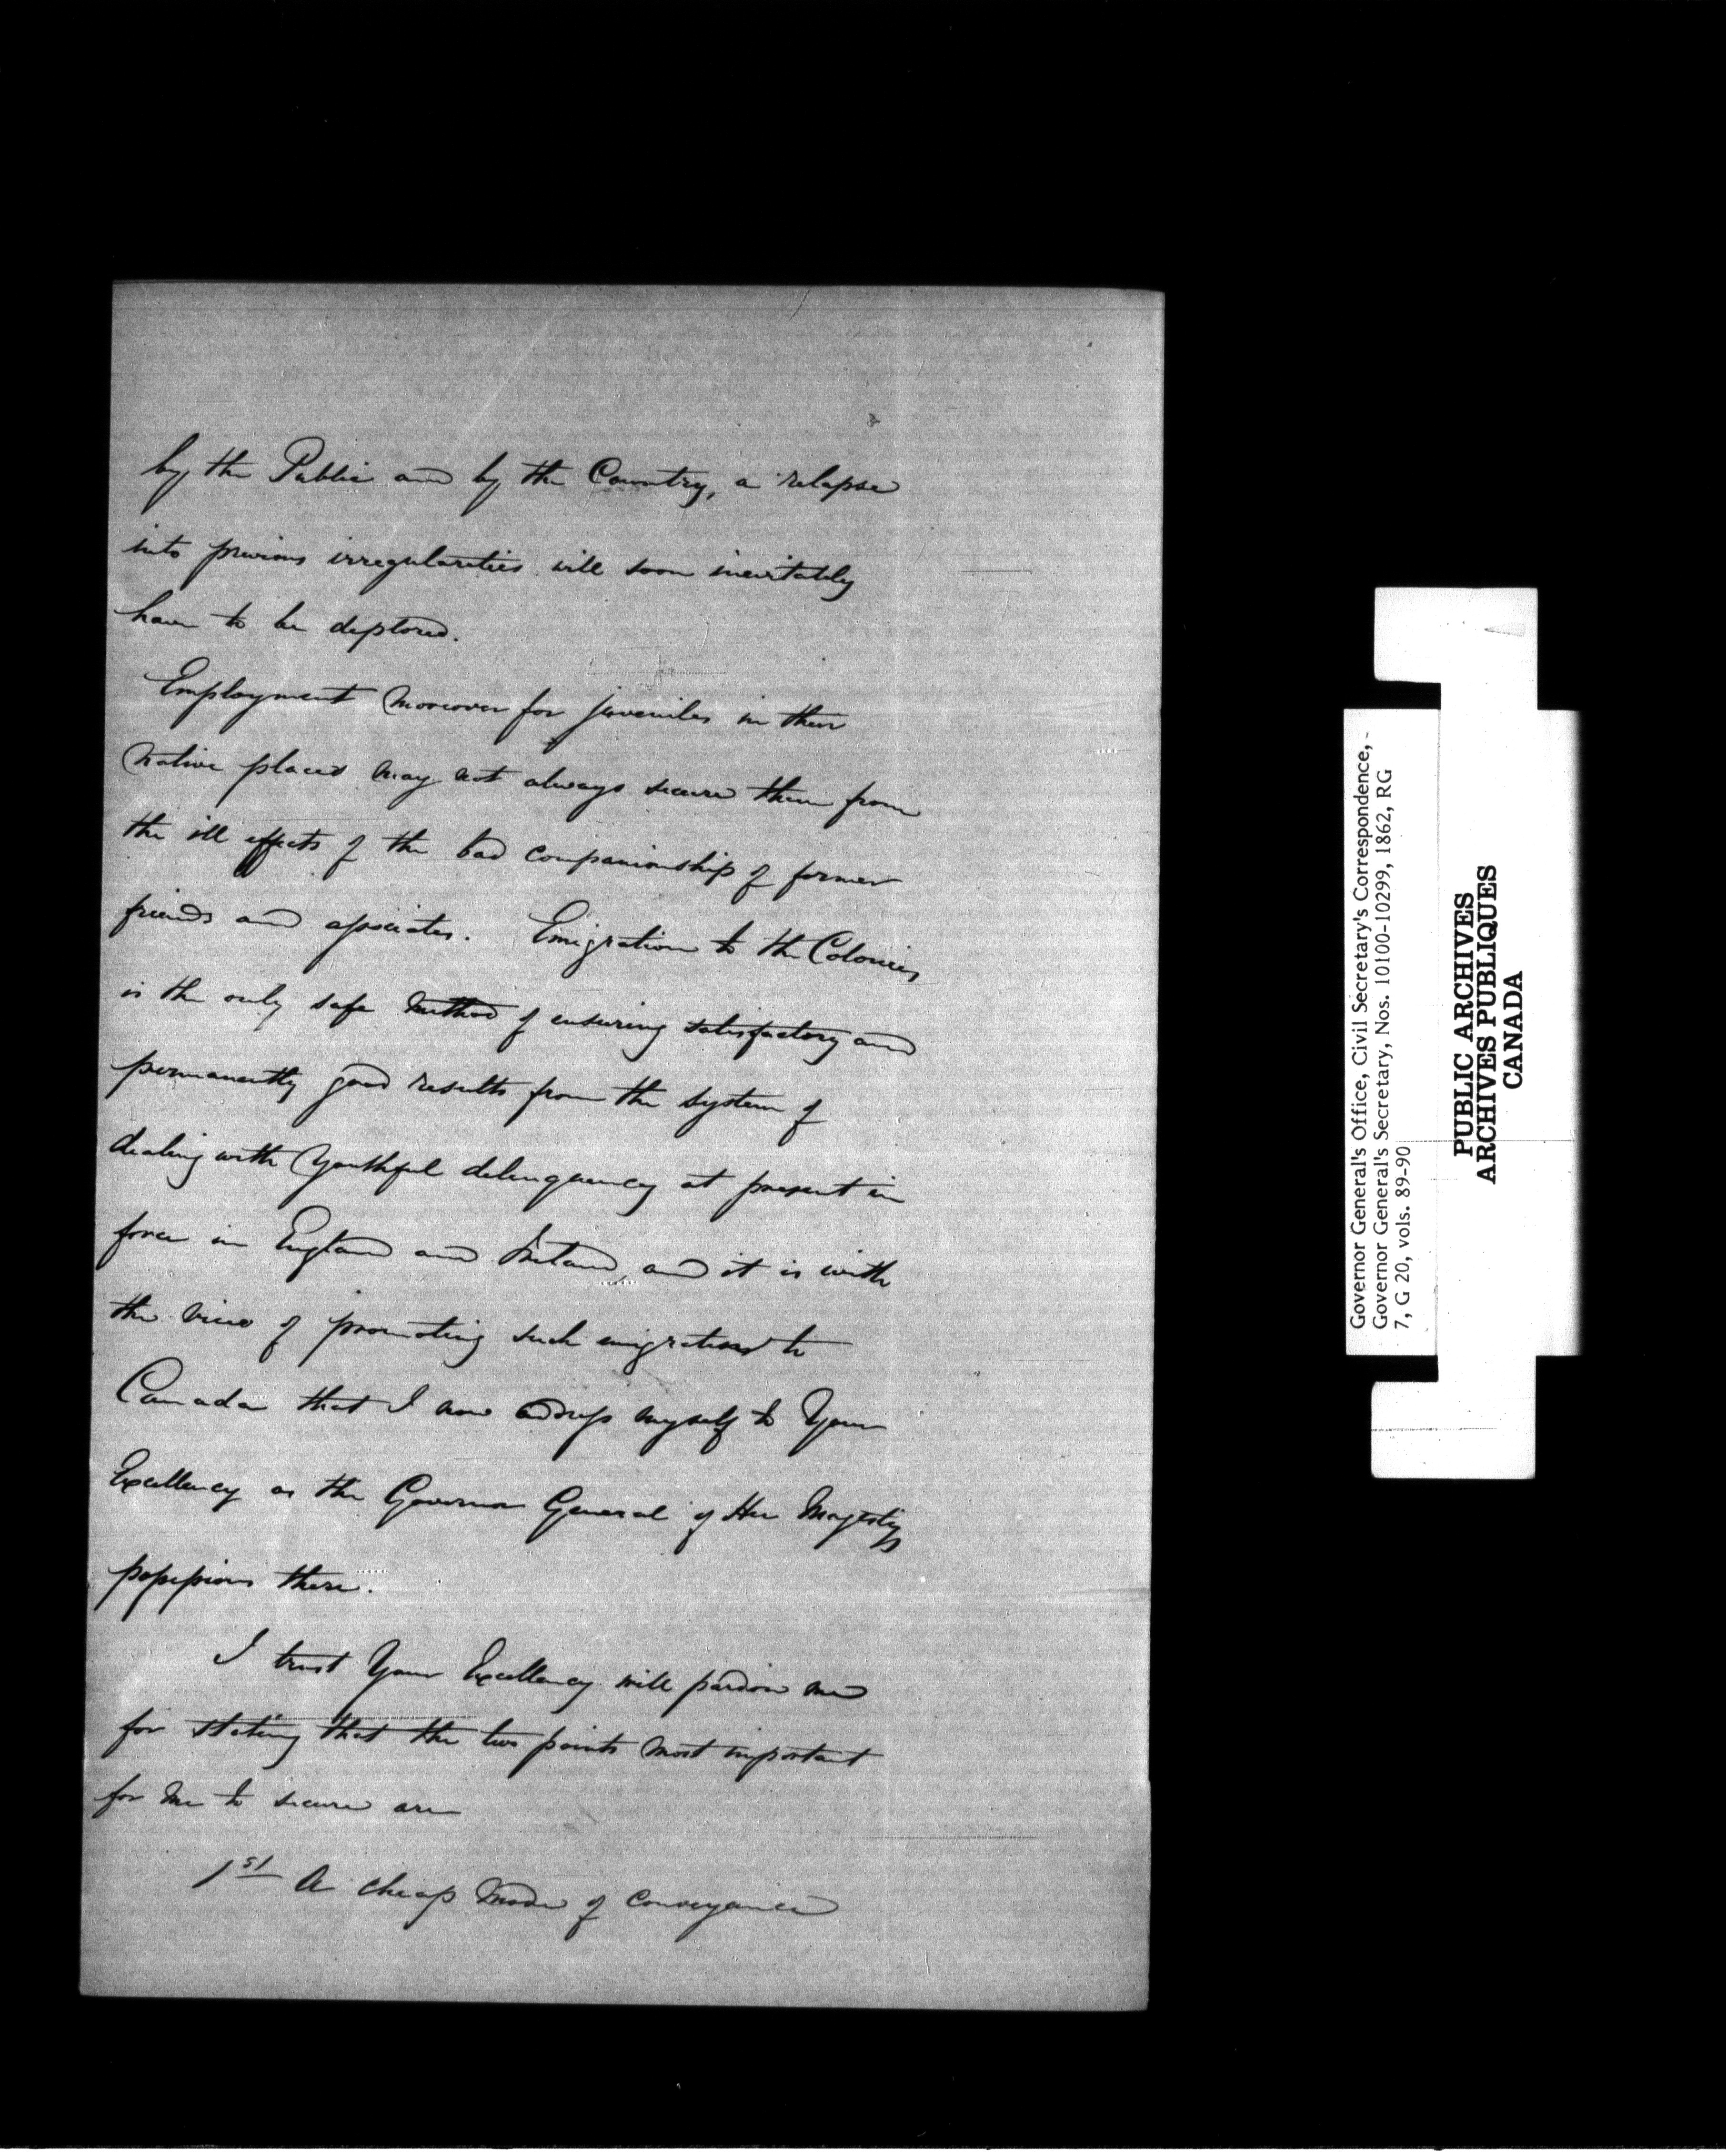 by the Public and by the Country, a relapse
into previous irregularities will soon inevitably
have to be deplored.
Employment moreover for juveniles in their
native places may not always secure them from
the ill effects of the bad companionship of former
friends and associates. Emigration to the Colonies
is the only safe method of ensuring satisfactory and
permanently good results from the system of
dealing with youthful delinquency at present in
force in England and Ireland, and it is with
the view of promoting such emigration to
Canada that I now address myself to Your
Excellency as the Governor General of Her Majestys
possessions there.
I trust Your Excellency will pardon me
for stating that the two points most important
for me to secure are
1st A cheap mode of conveyance
Governor General's Office, Civil Secretary's Correspondence,
Governor General's Secretary, Nos. 10100-10299, 1862, RG
7, G 20, vols. 89-90
PUBLIC ARCHIVES
ARCHIVES PUBLIQUES
CANADA